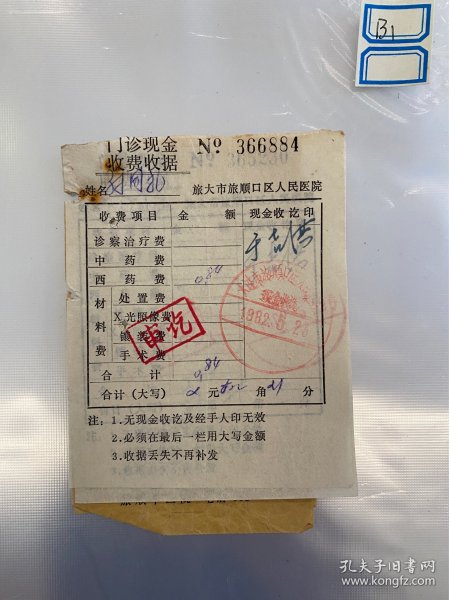 B1
门诊现金 Nº 366884
收费收据
姓名 旅大市旅顺口区人民医院
收费项目 金额 现金收讫印
诊察治疗费
中药费
西药费 0.84
材料费
处置费
X光照像费
镶装费
手术费
合计 0.84
合计(大写) 元 角 分
审讫
1982.6.23
注:1.无现金收讫及经手人印无效
2.必须在最后一栏用大写金额
3.收据丢失不再补发
孔夫子旧书网
www.kongfz.com